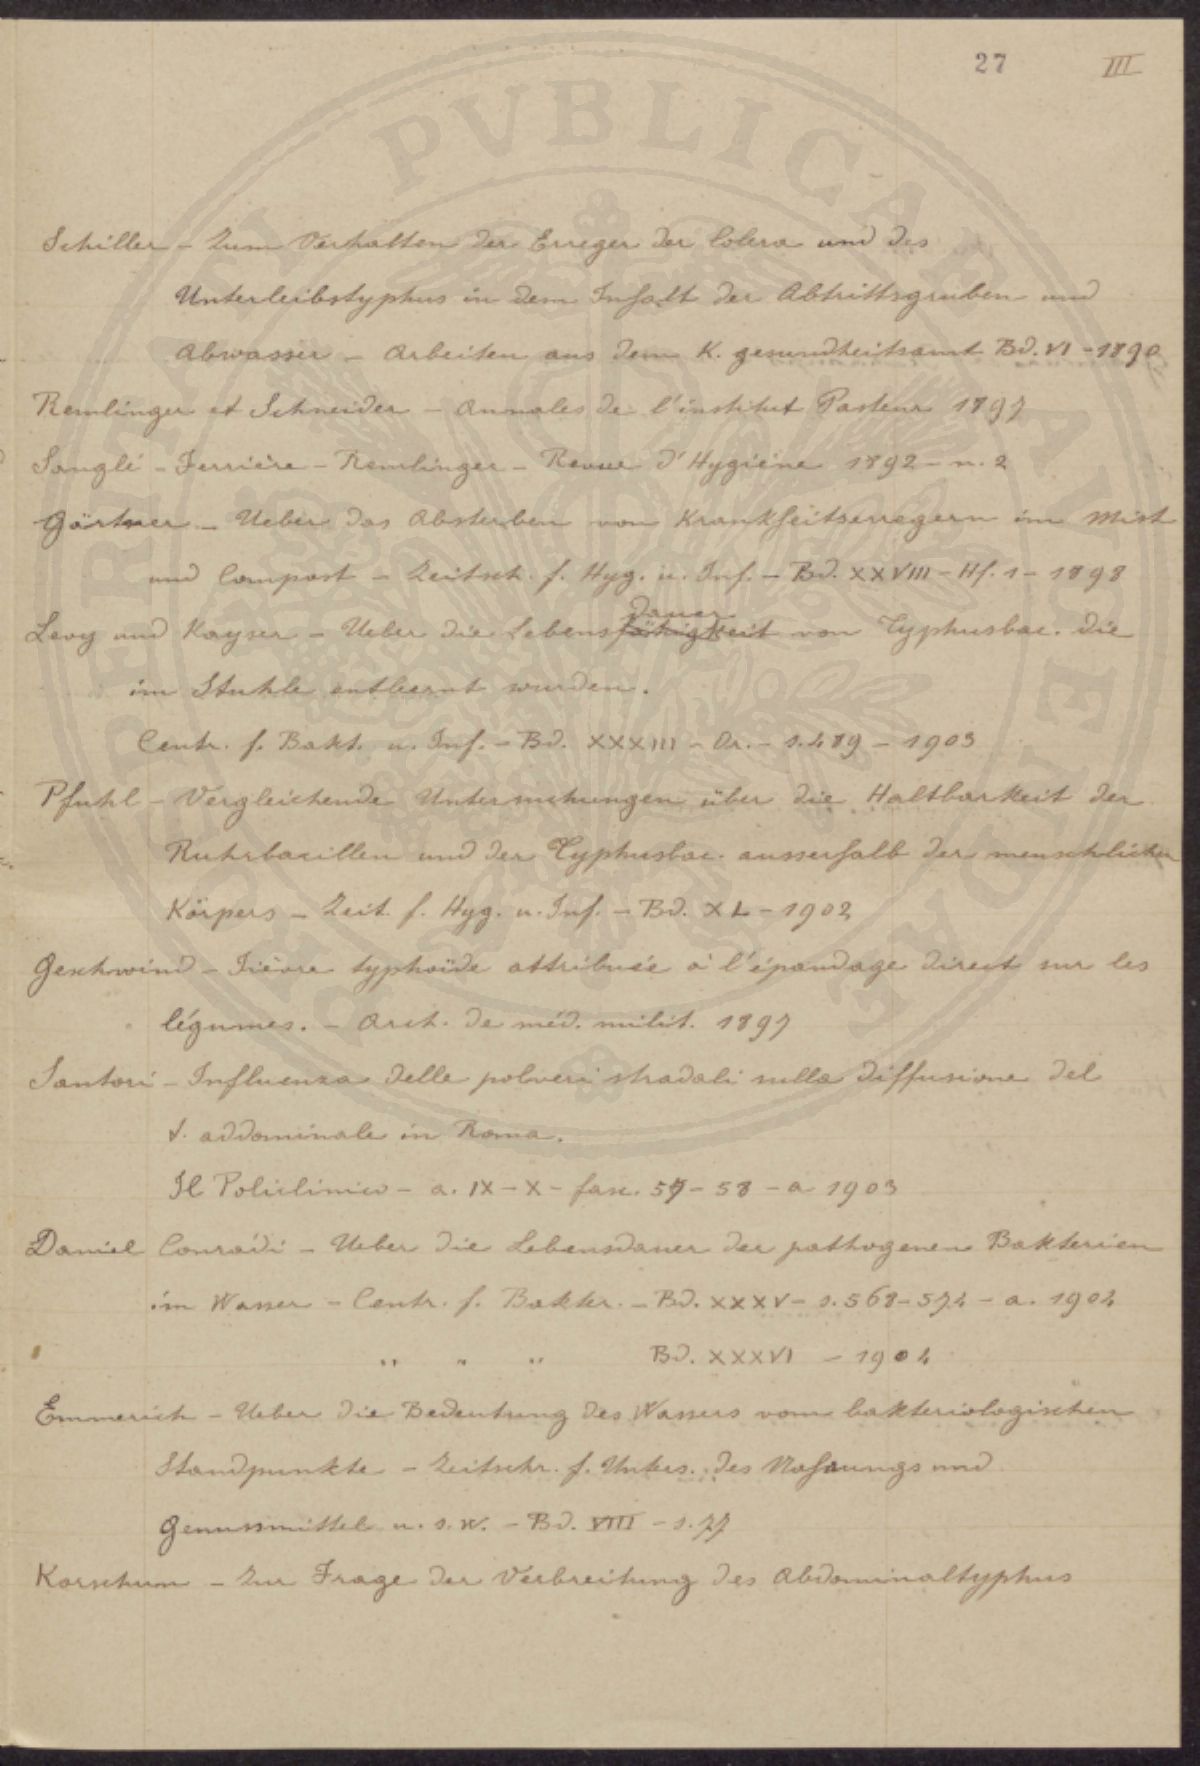 27 III
Schiller - Zum Verhalten der Erreger der Colera und des
Unterleibstyphus in dem Inhalt der Abtrittsgruben und
Abwasser - Arbeiten aus dem K. gesundheitsamt Bd. VI - 1890
Remlinger et Schneider - Annales de l'institut Pasteur 1897
Sanglé - Ferrière - Remlinger - Revue d'Hygiène 1892 - n. 2
Gärtner - Ueber das Absterben von Krankheitserregern im Mist
und Compost - Zeitsch. f. Hyg. u. Inf. - Bd. XXVIII - Hf. 1 - 1898
dauer
Levy und Kayser - Ueber die Lebensfähigkeit von Typhusbac. die
im Stuhle entleernt wurden.
Centr. f. Bakt. u. Inf. - Bd. XXXIII - Or. - s. 489 - 1903
Pfuhl - Vergleichende Untersuchungen über die Haltbarkeit der
Ruhrbacillen und der Typhusbac. ausserhalb der menschlichen
Körpers - Zeit. f. Hyg. u. Inf. - Bd. XL - 1902
Geschwind - Fièvre typhoïde attribuée à l'épandage direct sur les
légumes. - Arch. de méd. milit. 1897
Santori - Influenza delle polveri stradali sulla diffusione del
t. addominale in Roma.
Il Policlinico - a. IX - X - fasc. 57 - 58 - a 1903
Daniel Conradi - Ueber die Lebensdauer der pathogenen Bakterien
im Wasser - Centr. f. Bakter. - Bd. XXXV - s. 568-574 - a. 1904
" " " Bd. XXXVI - 1904
Emmerich - Ueber die Bedeutung des Wassers vom bakteriologischen
Standpunkte - Zeitschr. f. Unters. des Nahrungs und
Genussmittel u. s. w. - Bd. VIII - s. 77
Korschun - Zur Frage der Verbreitung des Abdominaltyphus